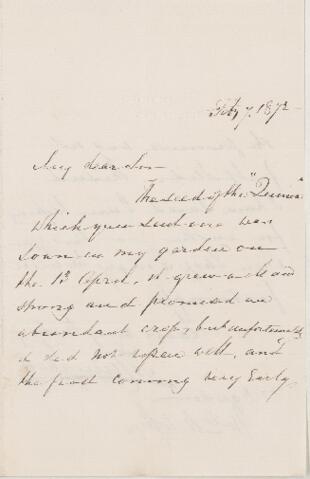 Feby 7. 1872
My dear Sir
The seed of the "
which you sent me was
sown in my garden on
the 1st April, it grew well and
strong and promised an
abundant crop, but unfortunately
it did not ripen well, and
the frost coming very early